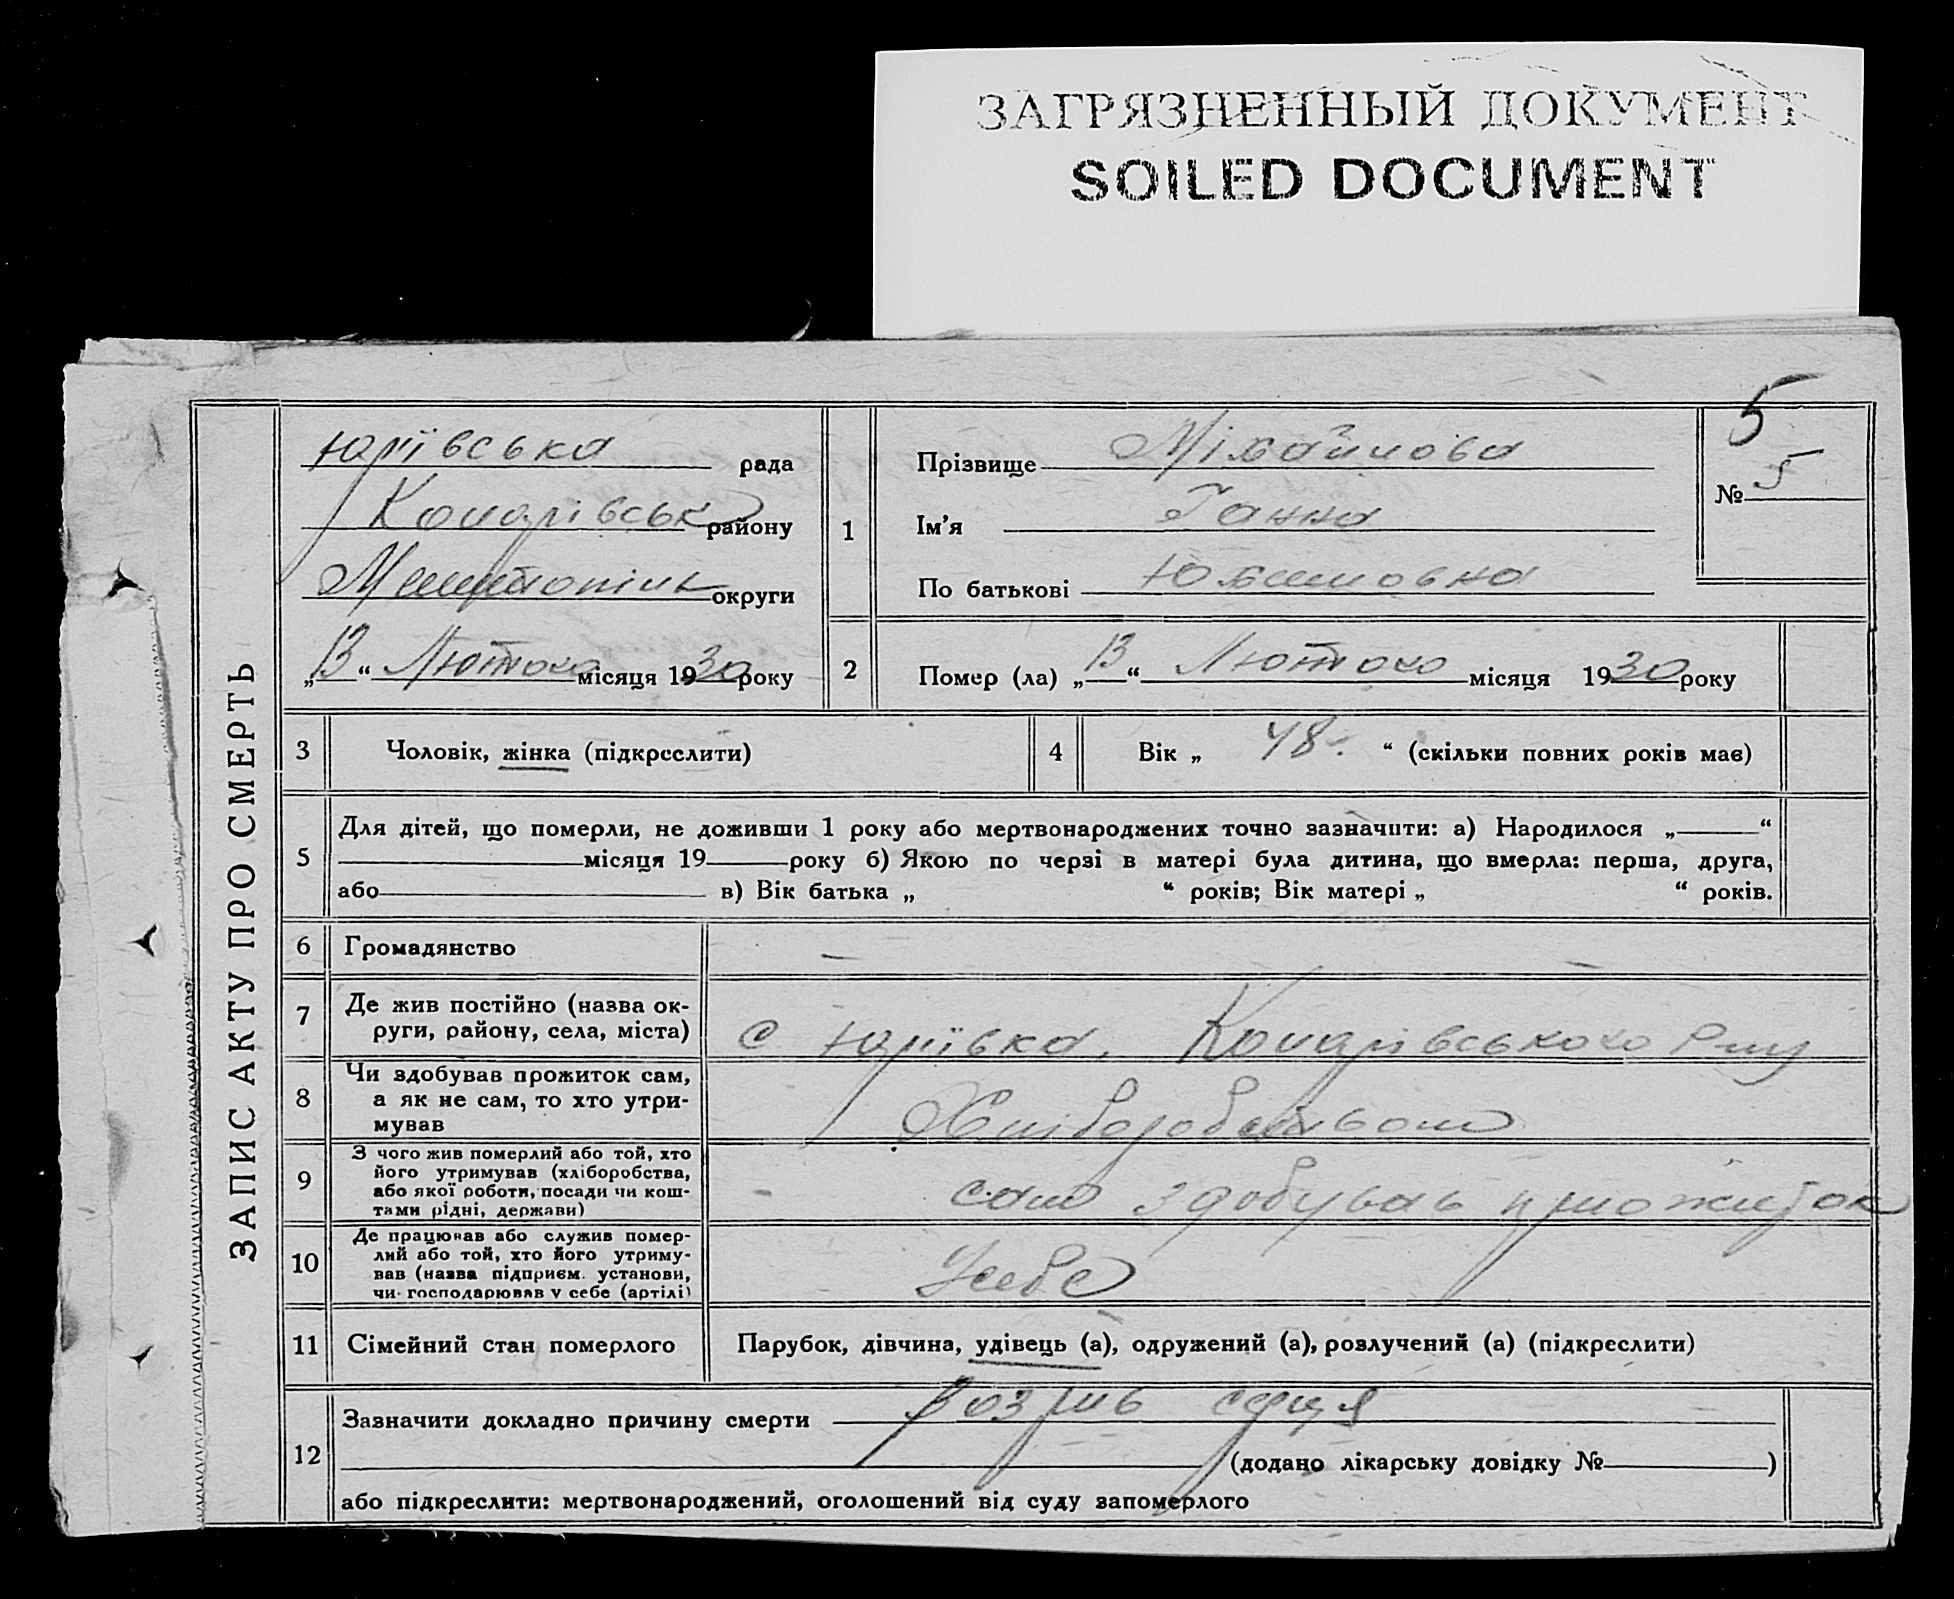 ЗАГРЯЗНЕННЫЙ ДОКУМЕНТ
SOILED DOCUMENT
ЗАПИС АКТУ ПРО СМЕРТЬ
Юріївська рада
району
округи
„13“ Лютого місяця 1930 року
1
Прізвище Міхайлова
Ім’я Ганна
По батькові
5
№ 5
2
Помер (ла) „13“ Лютого місяця 1930 року
3 Чоловік, жінка (підкреслити)
4 Вік „ 48 “ (скільки повних років має)
5
Для дітей, що померли, не доживши 1 року або мертвонароджених точно зазначити: а) Народилося „ “
місяця 19 року б) Якою по черзі в матері була дитина, що вмерла: перша, друга,
або в) Вік батька „ “ років; Вік матері „ “ років.
6 Громадянство —
7
Де жив постійно (назва ок-
руги, району, села, міста)
с Юріївка,
8
Чи здобував прожиток сам,
а як не сам, то хто утри-
мував
Хліборобством
9
З чого жив померлий або той, хто
його утримував (хліборобства,
або якої роботи, посади чи кош-
тами рідні, держави)
сам здобував прожиток
10
Де працював або служив помер-
лий або той, хто його утриму-
вав (назва підприєм. установи,
чи господарював у себе (артілі)
Усебе
11 Сімейний стан померлого
Парубок, дівчина, удівець (а), одружений (а), розлучений (а) (підкреслити)
12
Зазначити докладно причину смерти Возрив серця
(додано лікарську довідку № )
або підкреслити: мертвонароджений, оголошений від суду запомерлого